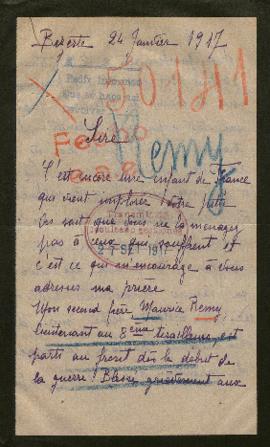 Bizerte 24 Janvier 1917
50141
Sire
Remy
C'est encore une enfant de France
qui vient implorer Votre pitié
Je sais que vous ne la ménagez
pas à ceux qui souffrent et
27 SET 1917
c'est ce qui m'encourage à Vous
adresser ma prière
Mon second frère, Maurice Remy,
lieutenant au 8ème tirailleurs, est
parti au front dès le début de
la guerre. Blessé grièvement aux